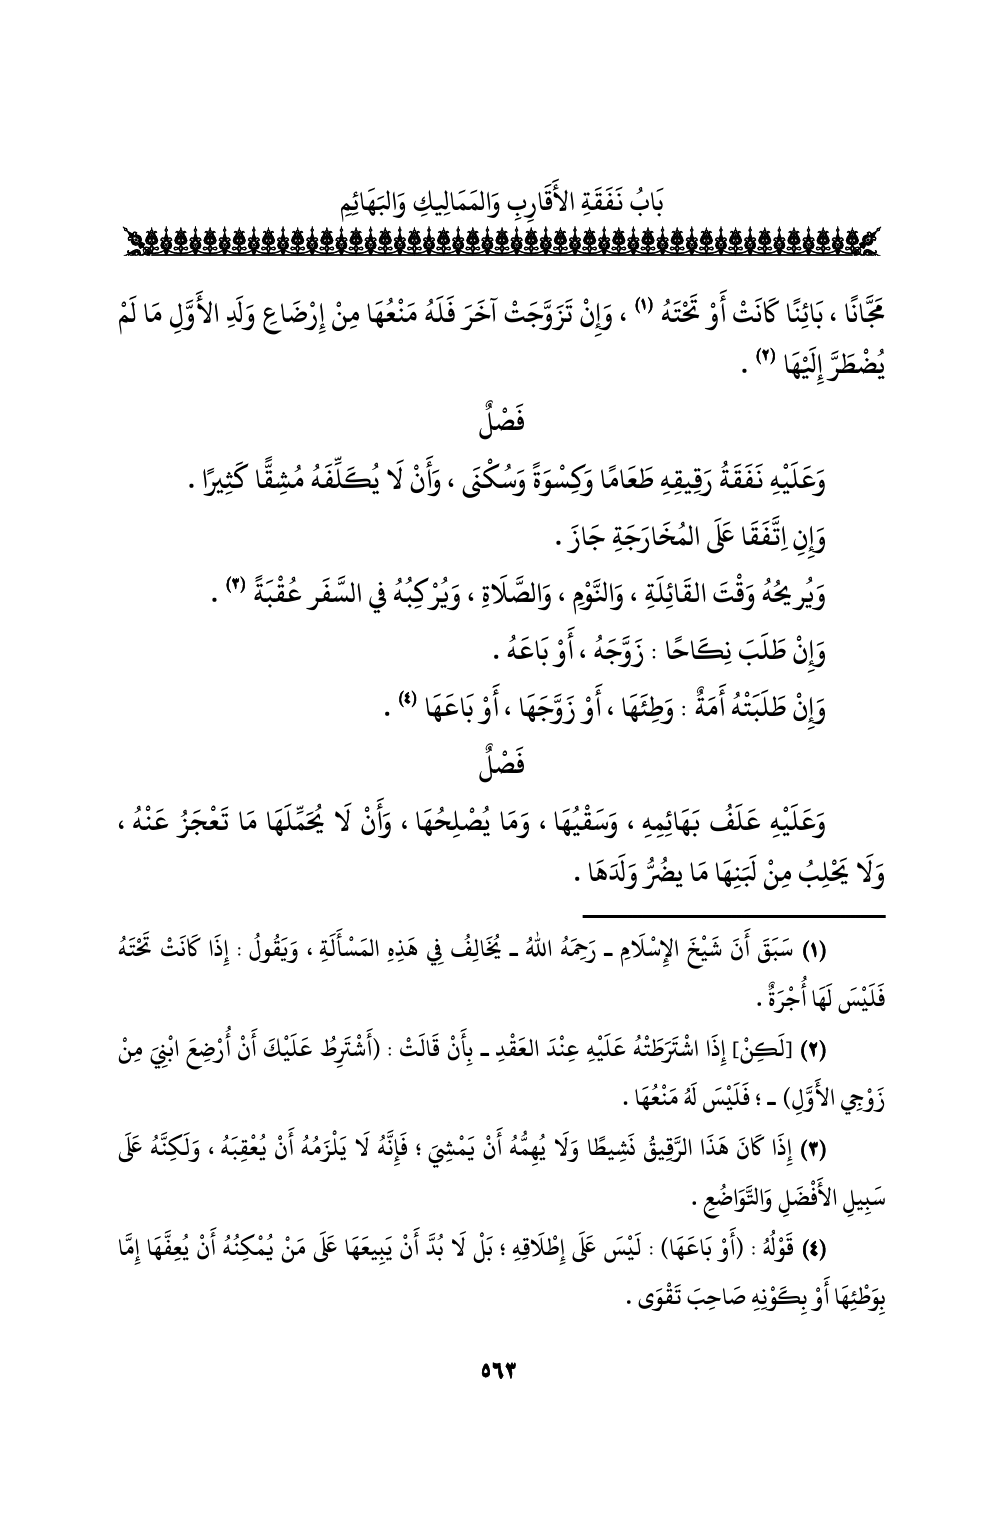 بَابُ نَفَقَةِ الأَقَارِبِ وَالمَمَالِيكِ وَالبَهَائِمِ
مَجَّانًا ، بَائِنًا كَانَتْ أَوْ تَحْتَهُ (١) ، وَإِنْ تَزَوَّجَتْ آخَرَ فَلَهُ مَنْعُهَا مِنْ إِرْضَاعِ وَلَدِ الأَوَّلِ مَا لَمْ
يُضْطَرَّ إِلَيْهَا (٢) .
فَصْلٌ
وَعَلَيْهِ نَفَقَةُ رَقِيقِهِ طَعَامًا وَكِسْوَةً وَسُكْنَى ، وَأَنْ لَا يُكَلِّفَهُ مُشِقًّا كَثِيرًا .
وَإِنِ اِتَّفَقَا عَلَى المُخَارَجَةِ جَازَ .
وَيُرِيحُهُ وَقْتَ القَائِلَةِ ، وَالنَّوْمِ ، وَالصَّلَاةِ ، وَيُرْكِبُهُ في السَّفَر عُقْبَةً (٣) .
وَإِنْ طَلَبَ نِكَاحًا : زَوَّجَهُ ، أَوْ بَاعَهُ .
وَإِنْ طَلَبَتْهُ أَمَةٌ : وَطِئَهَا ، أَوْ زَوَّجَهَا ، أَوْ بَاعَهَا (٤) .
فَصْلٌ
وَعَلَيْهِ عَلَفُ بَهَائِمِهِ ، وَسَقْيُهَا ، وَمَا يُصْلِحُهَا ، وَأَنْ لَا يُحَمِّلَهَا مَا تَعْجَزُ عَنْهُ ،
وَلَا يَحْلِبُ مِنْ لَبَنِهَا مَا يضُرُّ وَلَدَهَا .
(١) سَبَقَ أَنَ شَيْخَ الإِسْلَامِ ـ رَحِمَهُ اللهُ ـ يُخَالِفُ فِي هَذِهِ المَسْأَلَةِ ، وَيَقُولُ : إِذَا كَانَتْ تَحْتَهُ
فَلَيْسَ لَهَا أُجْرَةٌ .
(٢) [لَكِنْ] إِذَا اشْتَرَطَتْهُ عَلَيْهِ عِنْدَ العَقْدِ ـ بِأَنْ قَالَتْ : (أَشْتَرِطُ عَلَيْكَ أَنْ أُرْضِعَ ابْنِيَ مِنْ
زَوْجِي الأَوَّلِ) ـ ؛ فَلَيْسَ لَهُ مَنْعُهَا .
(٣) إِذَا كَانَ هَذَا الرَّقِيقُ نَشِيطًا وَلَا يُهِمُّهُ أَنْ يَمْشِيَ ؛ فَإِنَّهُ لَا يَلْزَمُهُ أَنْ يُعْقِبَهُ ، وَلَكِنَّهُ عَلَى
سَبِيلِ الأَفْضَلِ وَالتَّوَاضُعِ .
(٤) قَوْلُهُ : (أَوْ بَاعَهَا) : لَيْسَ عَلَى إِطْلَاقِهِ ؛ بَلْ لَا بُدَّ أَنْ يَبِيعَهَا عَلَى مَنْ يُمْكِنُهُ أَنْ يُعِفَّهَا إِمَّا
بِوَطْئِهَا أَوْ بِكَوْنِهِ صَاحِبَ تَقْوَى .
٥٦٣